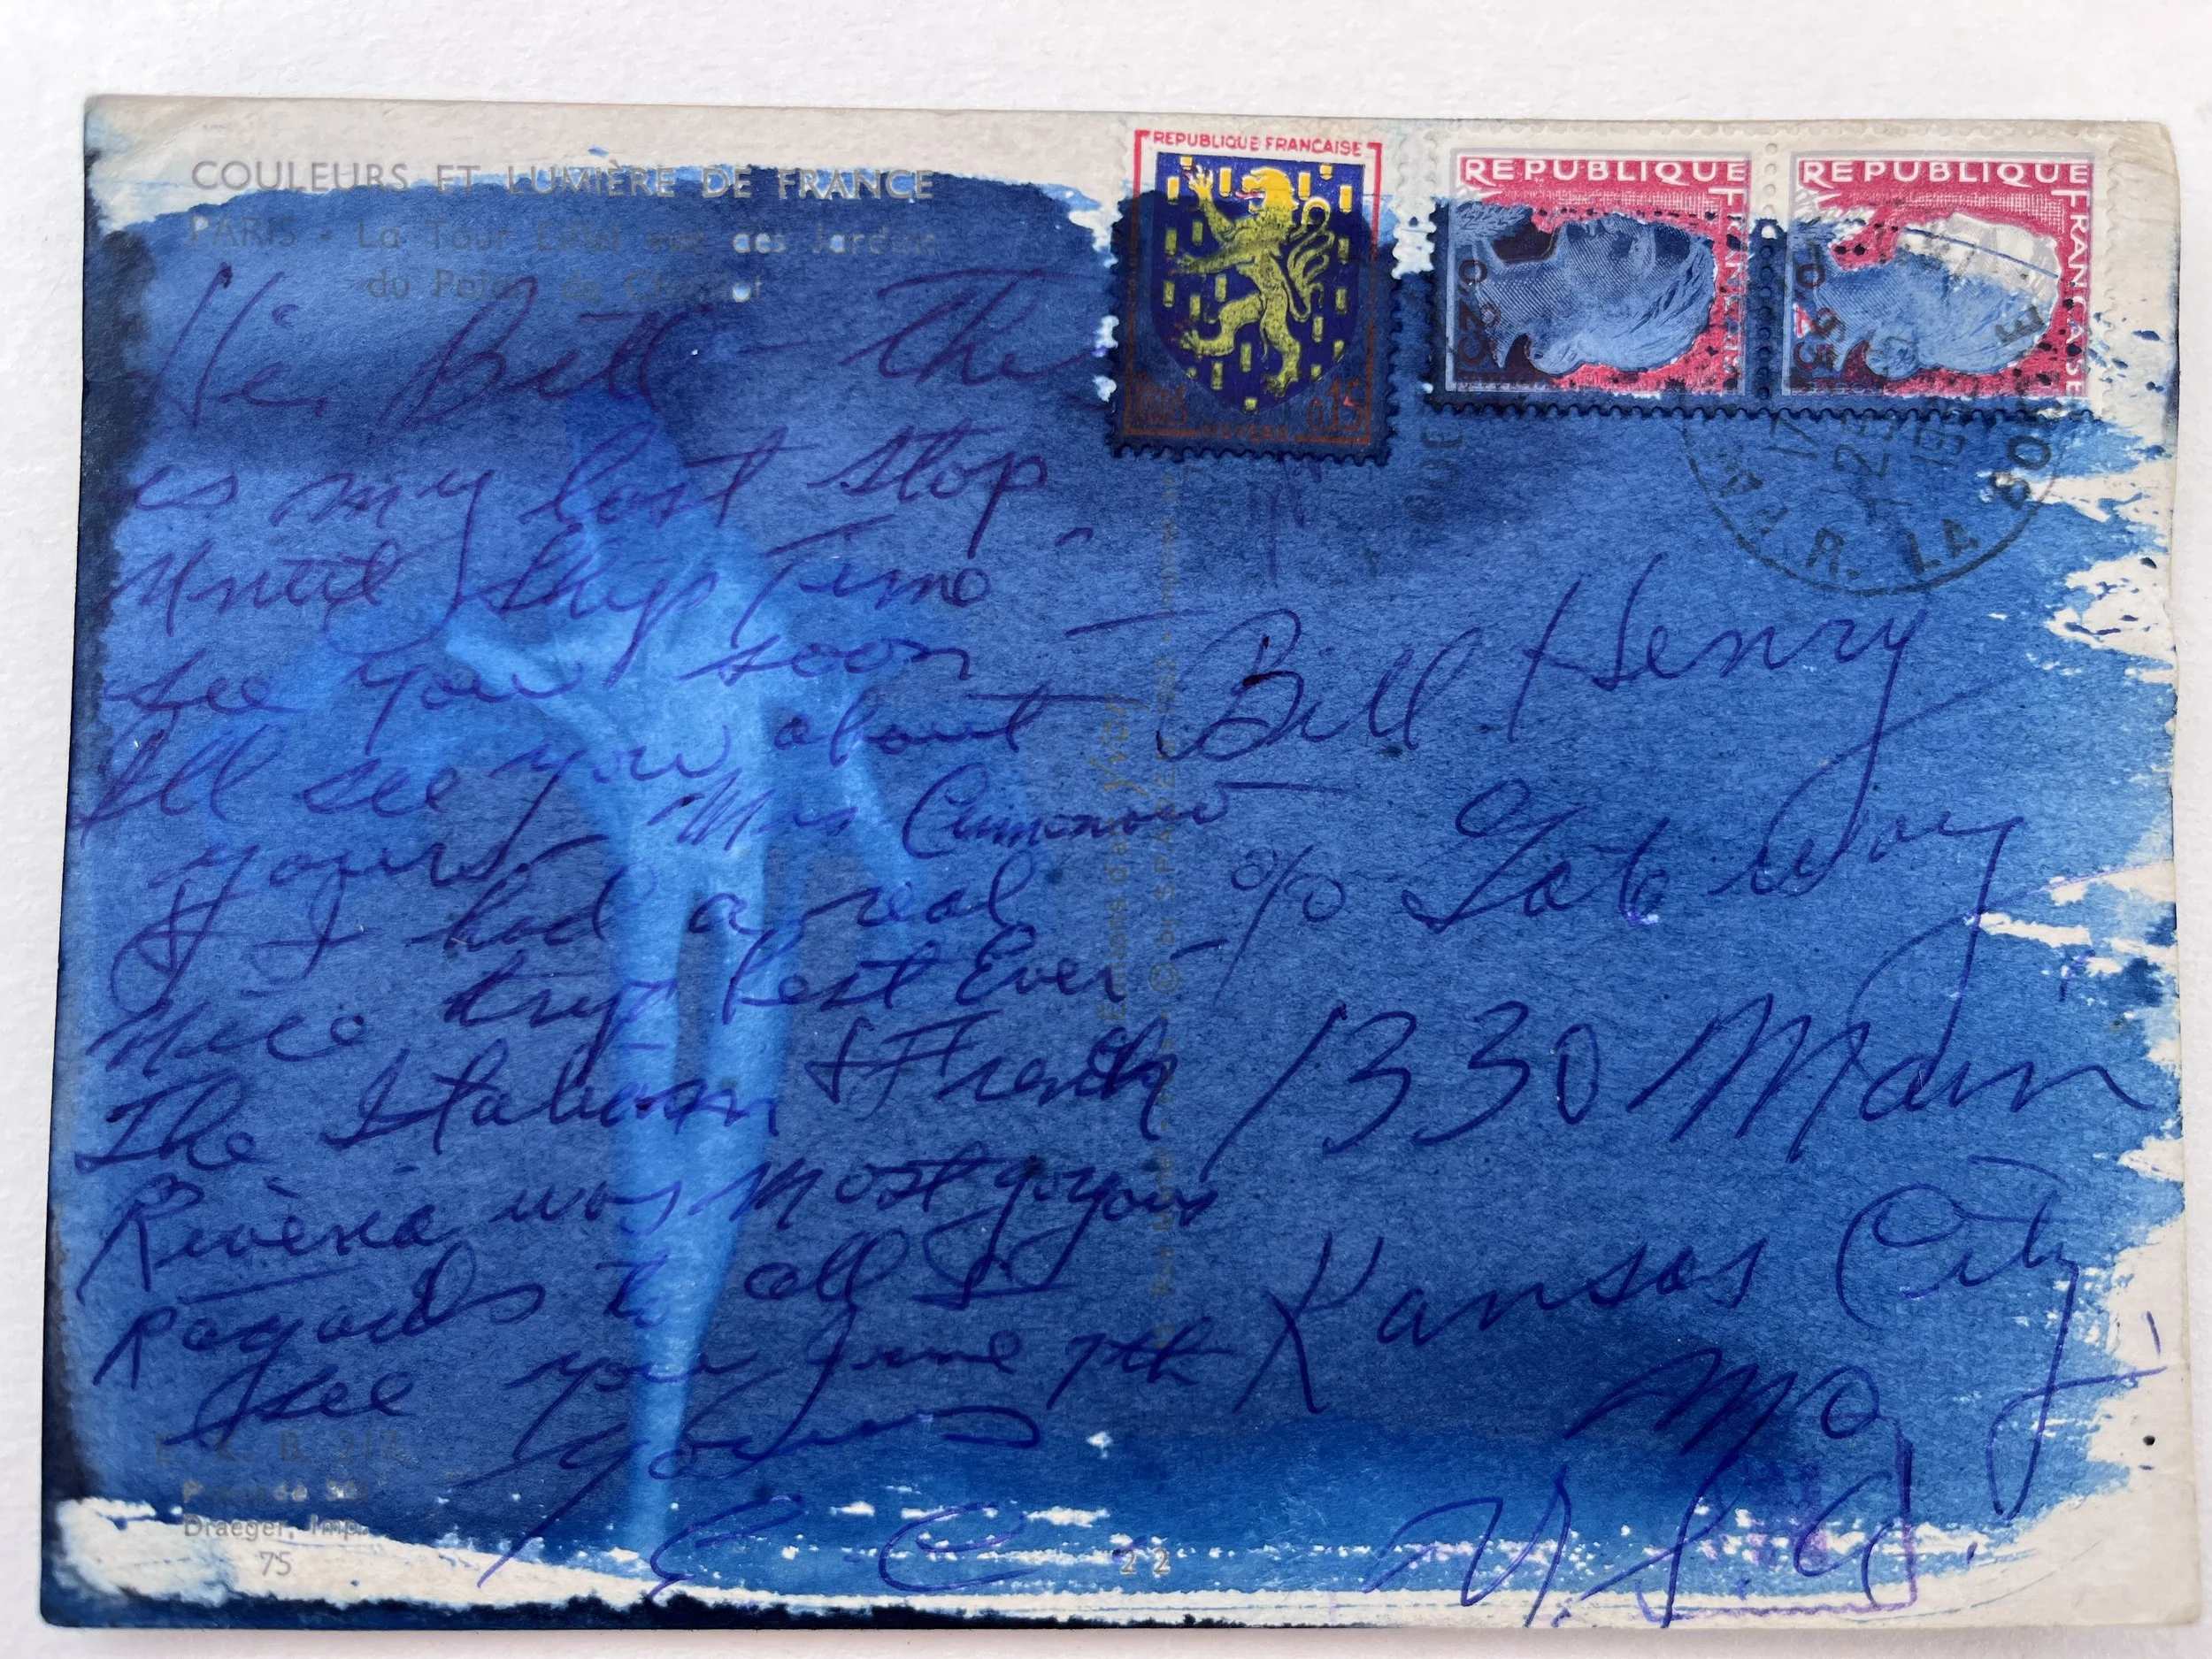 COULEURS ET LUMIÈRE DE FRANCE
PARIS - La Tour Eiffel vue des Jardins
du Palais de Chaillot
REPUBLIQUE FRANÇAISE
0,15
REPUBLIQUE FRANÇAISE
0,25
REPUBLIQUE FRANÇAISE
0,25
PAR R. LA BO
Hi, Bill - This
is my last stop
Until Ship Time -
See you soon
Ill see you about
yours Mrs
& I had a real
Nice trip best Ever -
The Italian & French
Riveria was most
Regards to all &
See you June 7th
Yours
E C
Bill Henry
c/o Gate Way
1330 Main
Kansas City
MO
U.S.A.
Editions d'art Yvon
© by S.P.A.D.E.M.
Draeger, Imp.
75
22